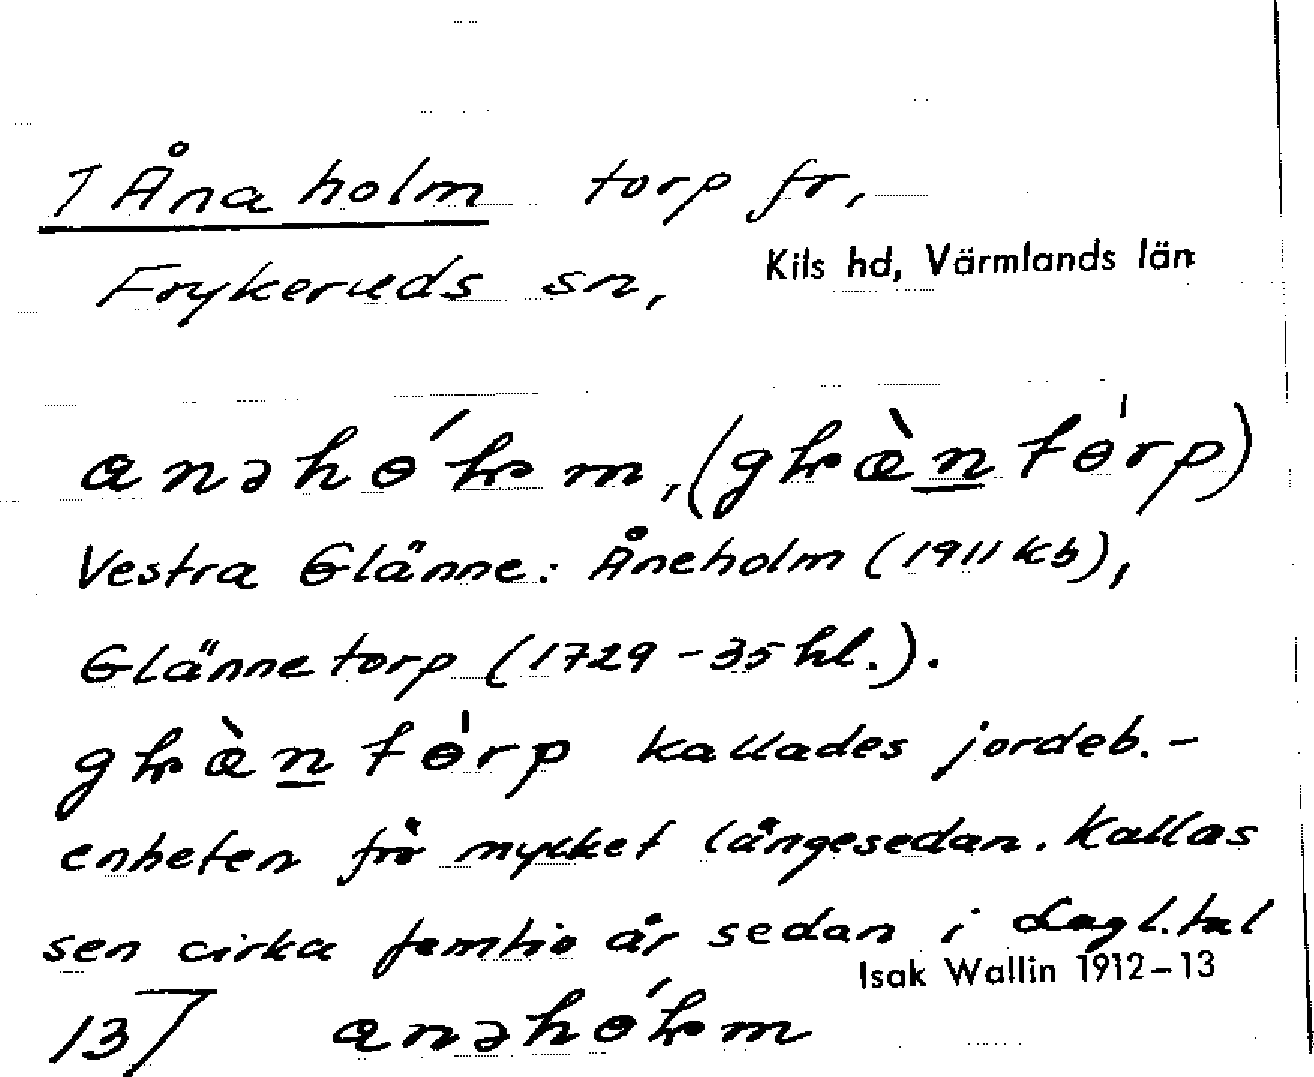 1 Åna holm torp fr,
Frykeruds sn, Kils hd, Värmlands län
anəhɵ́ɫm, (gɫæ̀n̲tɵ̍rp)
Vestra Glänne: Åneholm (1911 kb),
Glännetorp (1729-35 hl.).
gɫæ̀n̲tɵ̍rp kallades jordeb.-
enheten frå mycket långesedan. Kallas
sen cirka femtio år sedan i dagl. tal
Isak Wallin 1912-13
13 anəhɵ́ɫm